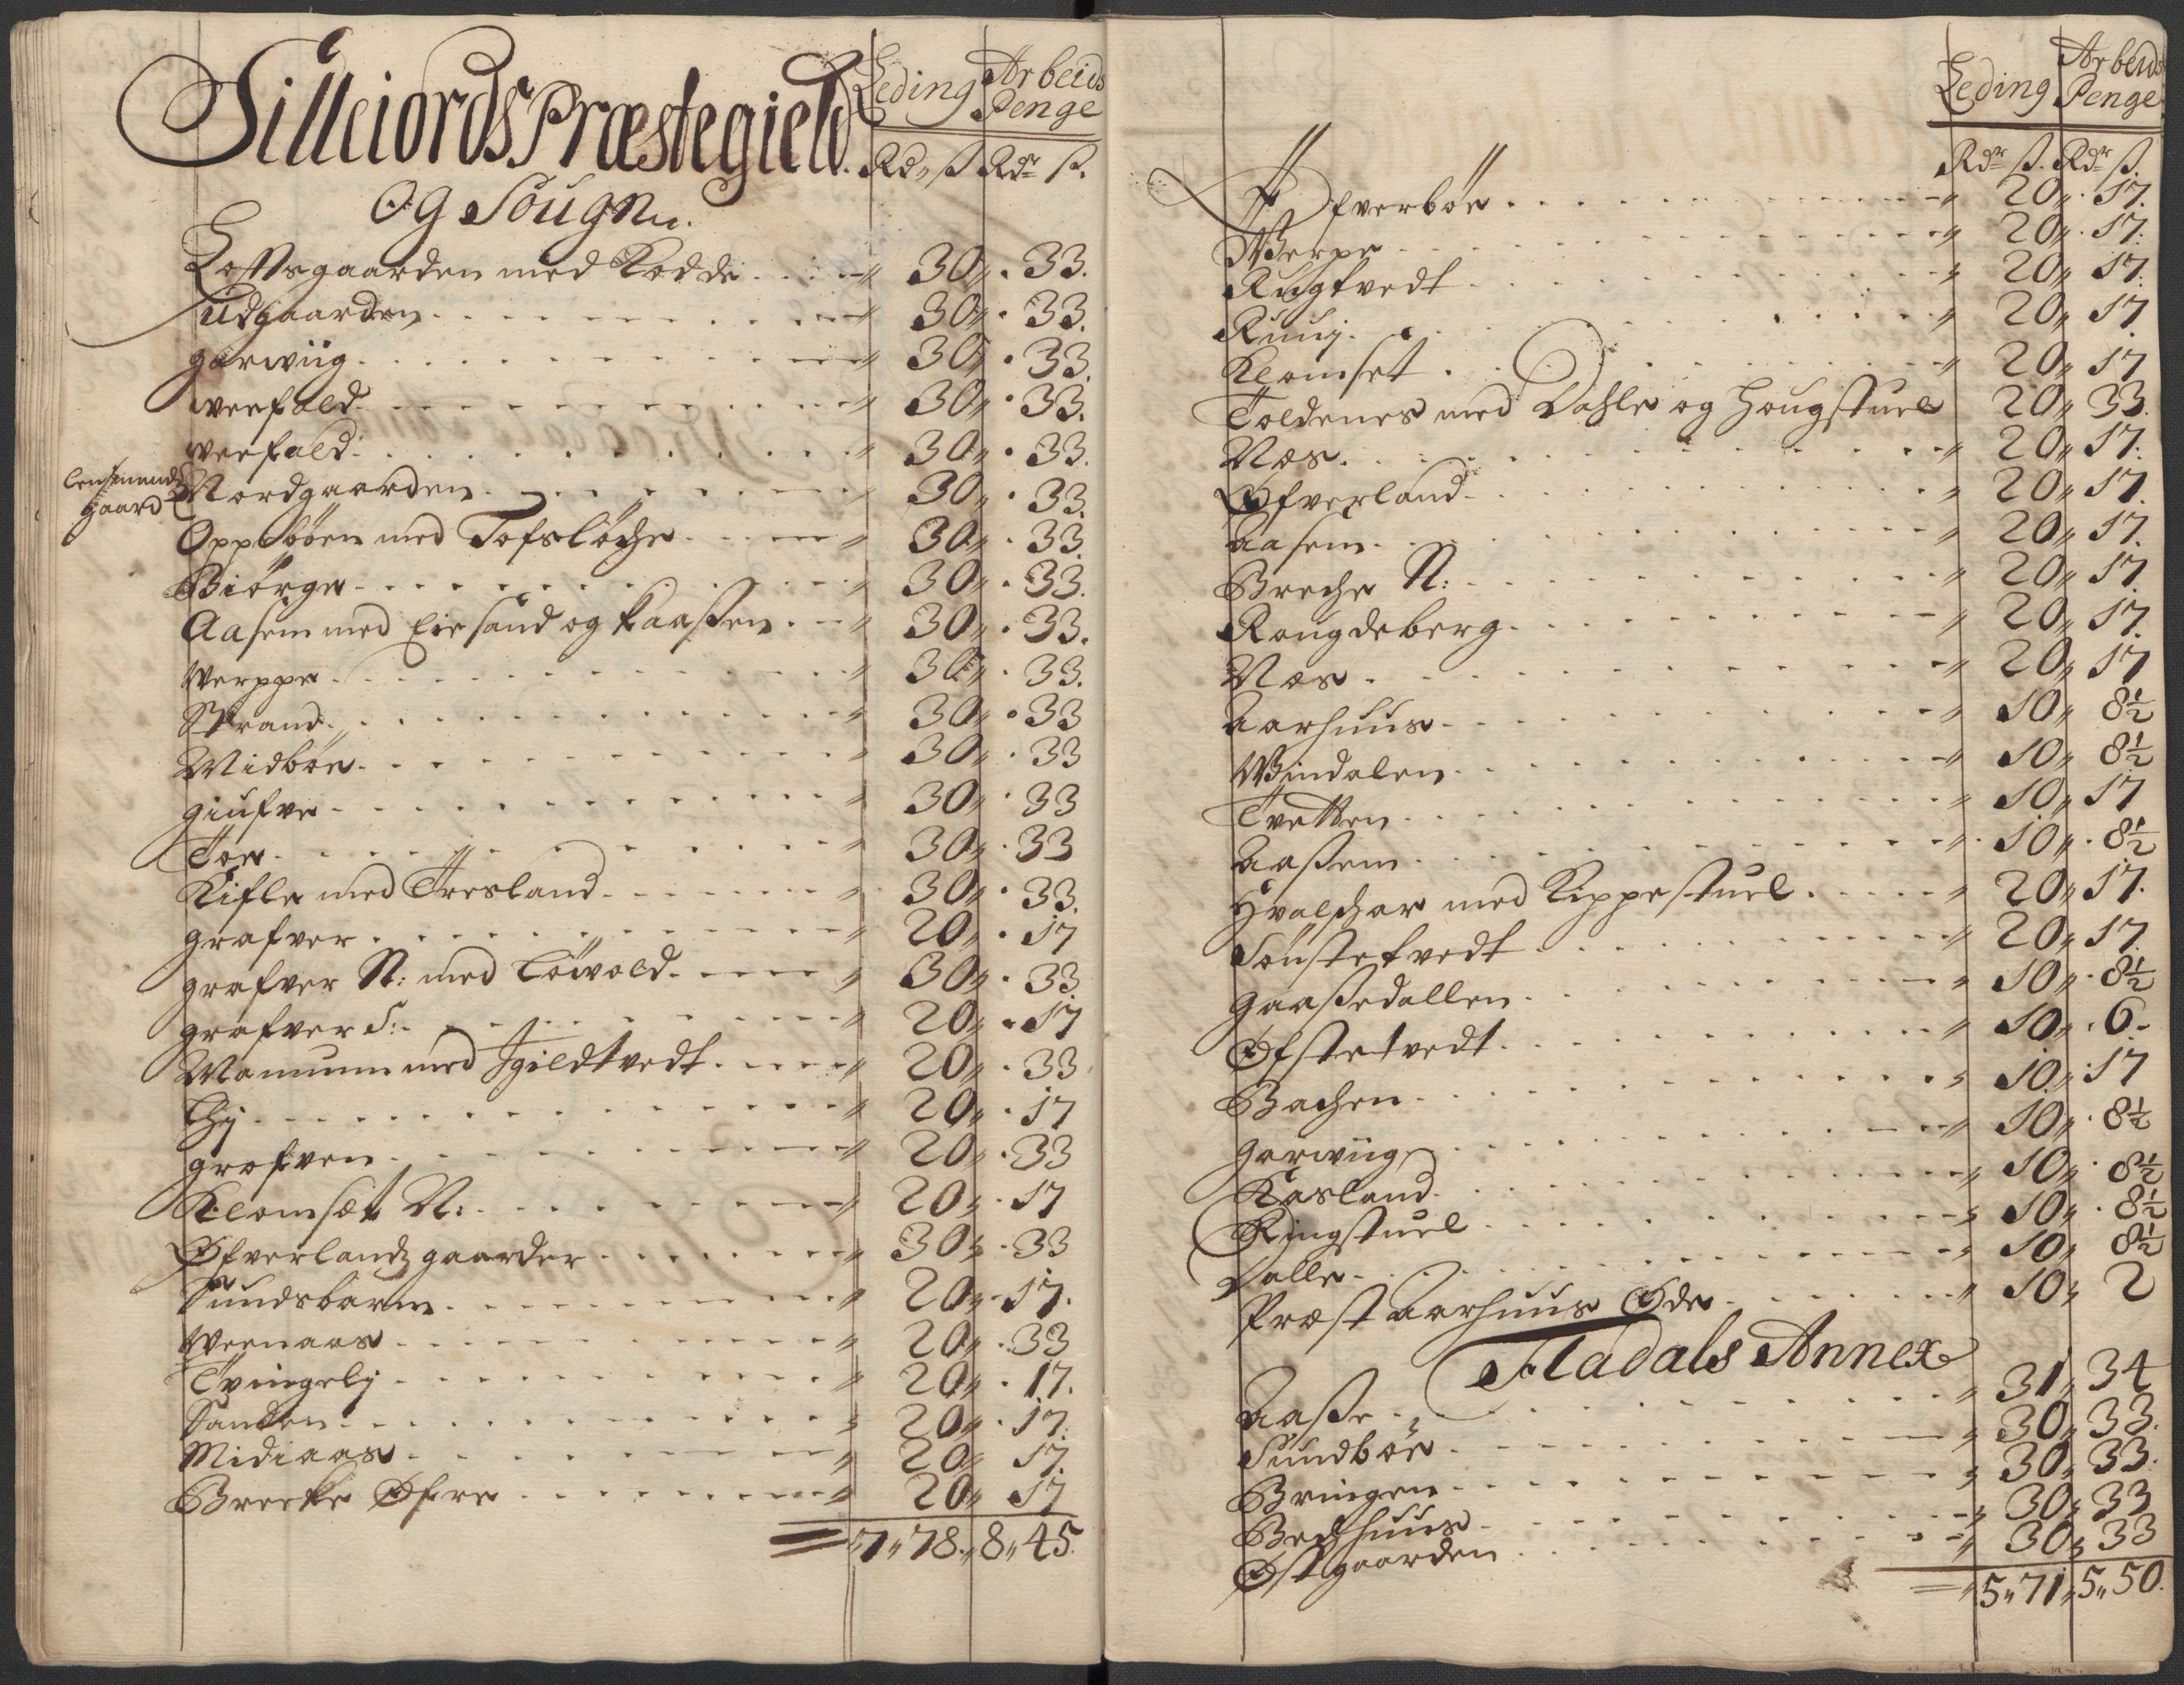 Silleiords Præstegield.
Og Sougn.
Leding Arbeids Penge
Rd, ß Rdr ß.
Lofftsgaarden med Kodde " 30 " 33.
Udgaarden " 30 " 33.
garwiig " 30 " 33.
weefald " 30 " 33.
weefald " 30 " 33.
lensmands gaard
Nordgaarden " 30 " 33.
Oppebøen med Tofsløche " 30 " 33.
Biørge " 30 " 33.
Aasem med Eiesand og kaaßen " 30 " 33.
Werppe " 30 " 33.
Strand " 30 " 33
Midbøe " 30 " 33
giufve " 30 " 33
Toe " 30 " 33
Kifle med Tresland " 30 " 33.
grafver " 20 " 17
grafver N: med Løwold " 30 " 33
grafver S: " 20 " 17
Manum med Sgieldtvedt " 20 " 33
Lhj " 20 " 17
grofven " 20 " 33
Klomset N: " 20 " 17
Øfverlandz gaarder " 30 " 33
Sundsbarm " 20 " 17.
Weenaas " 20 " 33
Tvingelj " 20 " 17.
Sanden " 20 " 17.
Midiaas " 20 " 17.
Brecke Øfre " 20 " 17
7 " 78 " 8 " 45.
Leding Arbeids Penge
Rdr ß. Rdr ß.
Øfverbøe " 20 " 17.
Werpe " 20 " 17.
Rugtvedt " 20 " 17.
Ruuj " 20 " 17
Klomset " 20 " 17
Toldenes med Dahle og Hougstuel 20 " 33.
Næs " 20 " 17.
Øfverland " 20 " 17.
Aasem " 20 " 17.
Breche N: " 20 " 17.
Rougdeberg " 20 " 17.
Næs " 20 " 17
Aarhuus " 10 " 8½
Windalen " 10 " 8½
Tvetten " 10 " 17
Aaßem " 10 " 8½
Hvalschar med Kippestuel " 20 " 17.
Sønstetvedt " 20 " 17.
gaaßedallen " 10 " 8½
Øfstetvedt " 10 " 6
Bachen " 10 " 17
garwiig " 10 " 8½
Kasland " 10 " 8½
Ringstuel " 10 " 8½
Dalle " 10 " 8½
Præst Aarhuus Øde " 10 " 2
Fladals Annex
Aaße " 31 " 34
Sundbøe " 30 " 33.
Bringen " 30 " 33.
Bechhuus " 30 " 33
Østgaarden " 30 " 33
5 " 71 " 5 " 50.